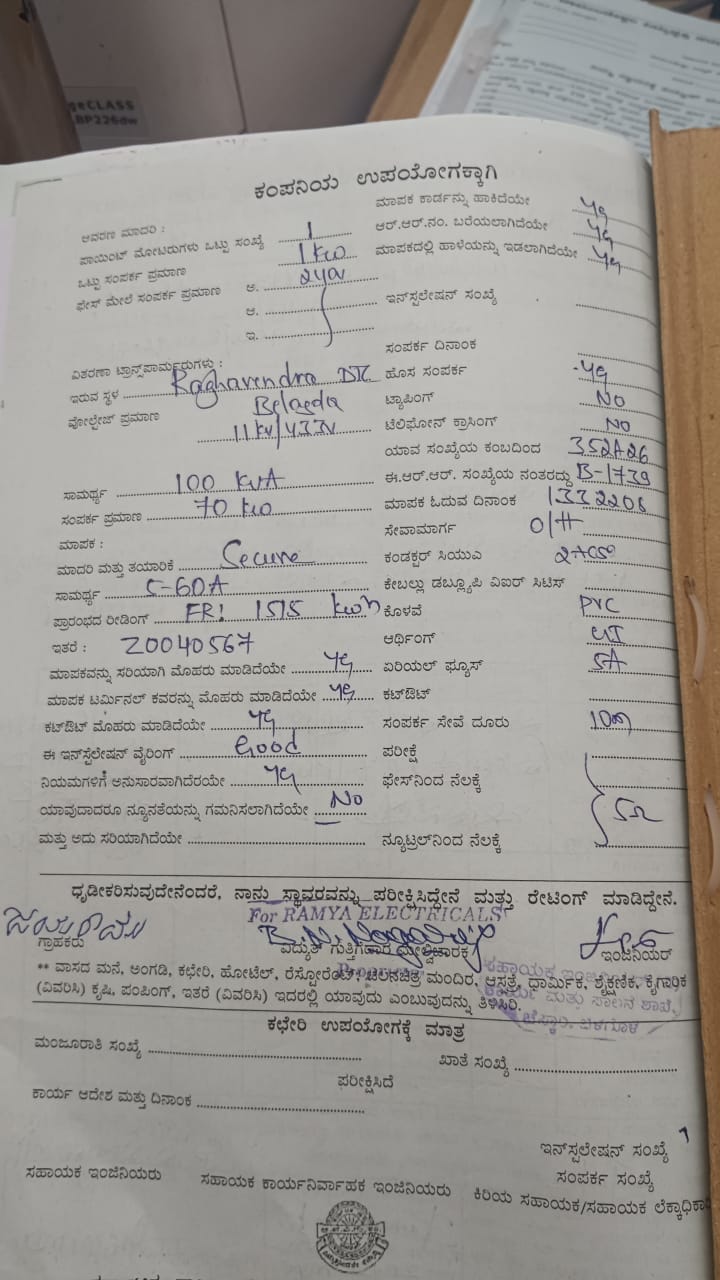 geCLASS
BP226dw
ಕಂಪನಿಯ ಉಪಯೋಗಕ್ಕಾಗಿ
ಆವರಣ ಮಾದರಿ :
ಮಾಪಕ ಕಾರ್ಡನ್ನು ಹಾಕಿದೆಯೇ Yes
ಪಾಯಿಂಟ್ ಮೋಟರುಗಳು ಒಟ್ಟು ಸಂಖ್ಯೆ 1
ಆರ್.ಆರ್.ನಂ. ಬರೆಯಲಾಗಿದೆಯೇ Yes
ಒಟ್ಟು ಸಂಪರ್ಕ ಪ್ರಮಾಣ 1 KW
ಮಾಪಕದಲ್ಲಿ ಹಾಳೆಯನ್ನು ಇಡಲಾಗಿದೆಯೇ Yes
ಫೇಸ್ ಮೇಲೆ ಸಂಪರ್ಕ ಪ್ರಮಾಣ ಅ. 240V
ಆ.
ಇನ್‌ಸ್ಟಲೇಷನ್ ಸಂಖ್ಯೆ
ಇ.
ಸಂಪರ್ಕ ದಿನಾಂಕ
ವಿತರಣಾ ಟ್ರಾನ್ಸ್‌ಪಾರ್ಮರುಗಳು :
ಇರುವ ಸ್ಥಳ Raghavendra DTC
ಹೊಸ ಸಂಪರ್ಕ Yes
ಟ್ಯಾಪಿಂಗ್ NO
ವೋಲ್ಟೇಜ್ ಪ್ರಮಾಣ 11KV/433V
ಟೆಲಿಫೋನ್ ಕ್ರಾಸಿಂಗ್ NO
ಯಾವ ಸಂಖ್ಯೆಯ ಕಂಬದಿಂದ 352A26
ಸಾಮರ್ಥ್ಯ 100 KVA
ಈ.ಆರ್.ಆರ್. ಸಂಖ್ಯೆಯ ನಂತರದ್ದು B-1739
ಸಂಪರ್ಕ ಪ್ರಮಾಣ 70 KW
ಮಾಪಕ ಓದುವ ದಿನಾಂಕ 1332206
ಮಾಪಕ :
ಸೇವಾಮಾರ್ಗ O/H
ಮಾದರಿ ಮತ್ತು ತಯಾರಿಕೆ Secure
ಕಂಡಕ್ಟರ್ ಸಿಯುಎ
ಸಾಮರ್ಥ್ಯ 5-60A
ಕೇಬಲ್ಲು ಡಬ್ಲ್ಯೂಪಿ ವಿಐರ್ ಸಿಟಿಸ್
ಪ್ರಾರಂಭದ ರೀಡಿಂಗ್ FR! 15/5 KWh
ಕೊಳವೆ PVC
ಇತರೆ : Z0040567
ಆರ್ಥಿಂಗ್ GI
ಮಾಪಕವನ್ನು ಸರಿಯಾಗಿ ಮೊಹರು ಮಾಡಿದೆಯೇ Yes
ಏರಿಯಲ್ ಫ್ಯೂಸ್ 5A
ಮಾಪಕ ಟರ್ಮಿನಲ್ ಕವರನ್ನು ಮೊಹರು ಮಾಡಿದೆಯೇ Yes
ಕಟ್‌ಔಟ್
ಕಟ್‌ಔಟ್ ಮೊಹರು ಮಾಡಿದೆಯೇ Yes
ಸಂಪರ್ಕ ಸೇವೆ ದೂರು 10m
ಈ ಇನ್‌ಸ್ಟೆಲೇಷನ್ ವೈರಿಂಗ್ Good
ಪರೀಕ್ಷೆ
ನಿಯಮಗಳಿಗೆ ಅನುಸಾರವಾಗಿದೆರಯೇ Yes
ಫೇಸ್‌ನಿಂದ ನೆಲಕ್ಕೆ
ಯಾವುದಾದರೂ ನ್ಯೂನತೆಯನ್ನು ಗಮನಿಸಲಾಗಿದೆಯೇ No
5Ω
ಮತ್ತು ಅದು ಸರಿಯಾಗಿದೆಯೇ
ನ್ಯೂಟ್ರಲ್‌ನಿಂದ ನೆಲಕ್ಕೆ
ಧೃಡೀಕರಿಸುವುದೇನೆಂದರೆ, ನಾನು ಸ್ಥಾವರವನ್ನು ಪರೀಕ್ಷಿಸಿದ್ದೇನೆ ಮತ್ತು ರೇಟಿಂಗ್ ಮಾಡಿದ್ದೇನೆ.
For RAMYA ELECTRICALS
ಗ್ರಾಹಕರು
ವಿದ್ಯುತ್ ಗುತ್ತಿಗೆದಾರ ಮೇಲ್ವಿಚಾರಕ
ಇಂಜಿನಿಯರ್
** ವಾಸದ ಮನೆ, ಅಂಗಡಿ, ಕಛೇರಿ, ಹೋಟೆಲ್, ರೆಸ್ಟೋರೆಂಟ್, ಚಲನಚಿತ್ರ ಮಂದಿರ, ಆಸ್ಪತ್ರೆ, ಧಾರ್ಮಿಕ, ಶೈಕ್ಷಣಿಕ, ಕೈಗಾರಿಕ
(ವಿವರಿಸಿ) ಕೃಷಿ, ಪಂಪಿಂಗ್, ಇತರೆ (ವಿವರಿಸಿ) ಇದರಲ್ಲಿ ಯಾವುದು ಎಂಬುವುದನ್ನು ತಿಳಿಸಿರಿ.
ಕಛೇರಿ ಉಪಯೋಗಕ್ಕೆ ಮಾತ್ರ
ಮಂಜೂರಾತಿ ಸಂಖ್ಯೆ
ಖಾತೆ ಸಂಖ್ಯೆ
ಪರೀಕ್ಷಿಸಿದೆ
ಕಾರ್ಯ ಆದೇಶ ಮತ್ತು ದಿನಾಂಕ
ಇನ್‌ಸ್ಪಲೇಷನ್ ಸಂಖ್ಯೆ
ಸಂಪರ್ಕ ಸಂಖ್ಯೆ
ಸಹಾಯಕ ಇಂಜಿನಿಯರು
ಸಹಾಯಕ ಕಾರ್ಯನಿರ್ವಾಹಕ ಇಂಜಿನಿಯರು
ಕಿರಿಯ ಸಹಾಯಕ/ಸಹಾಯಕ ಲೆಕ್ಕಾಧಿಕಾ